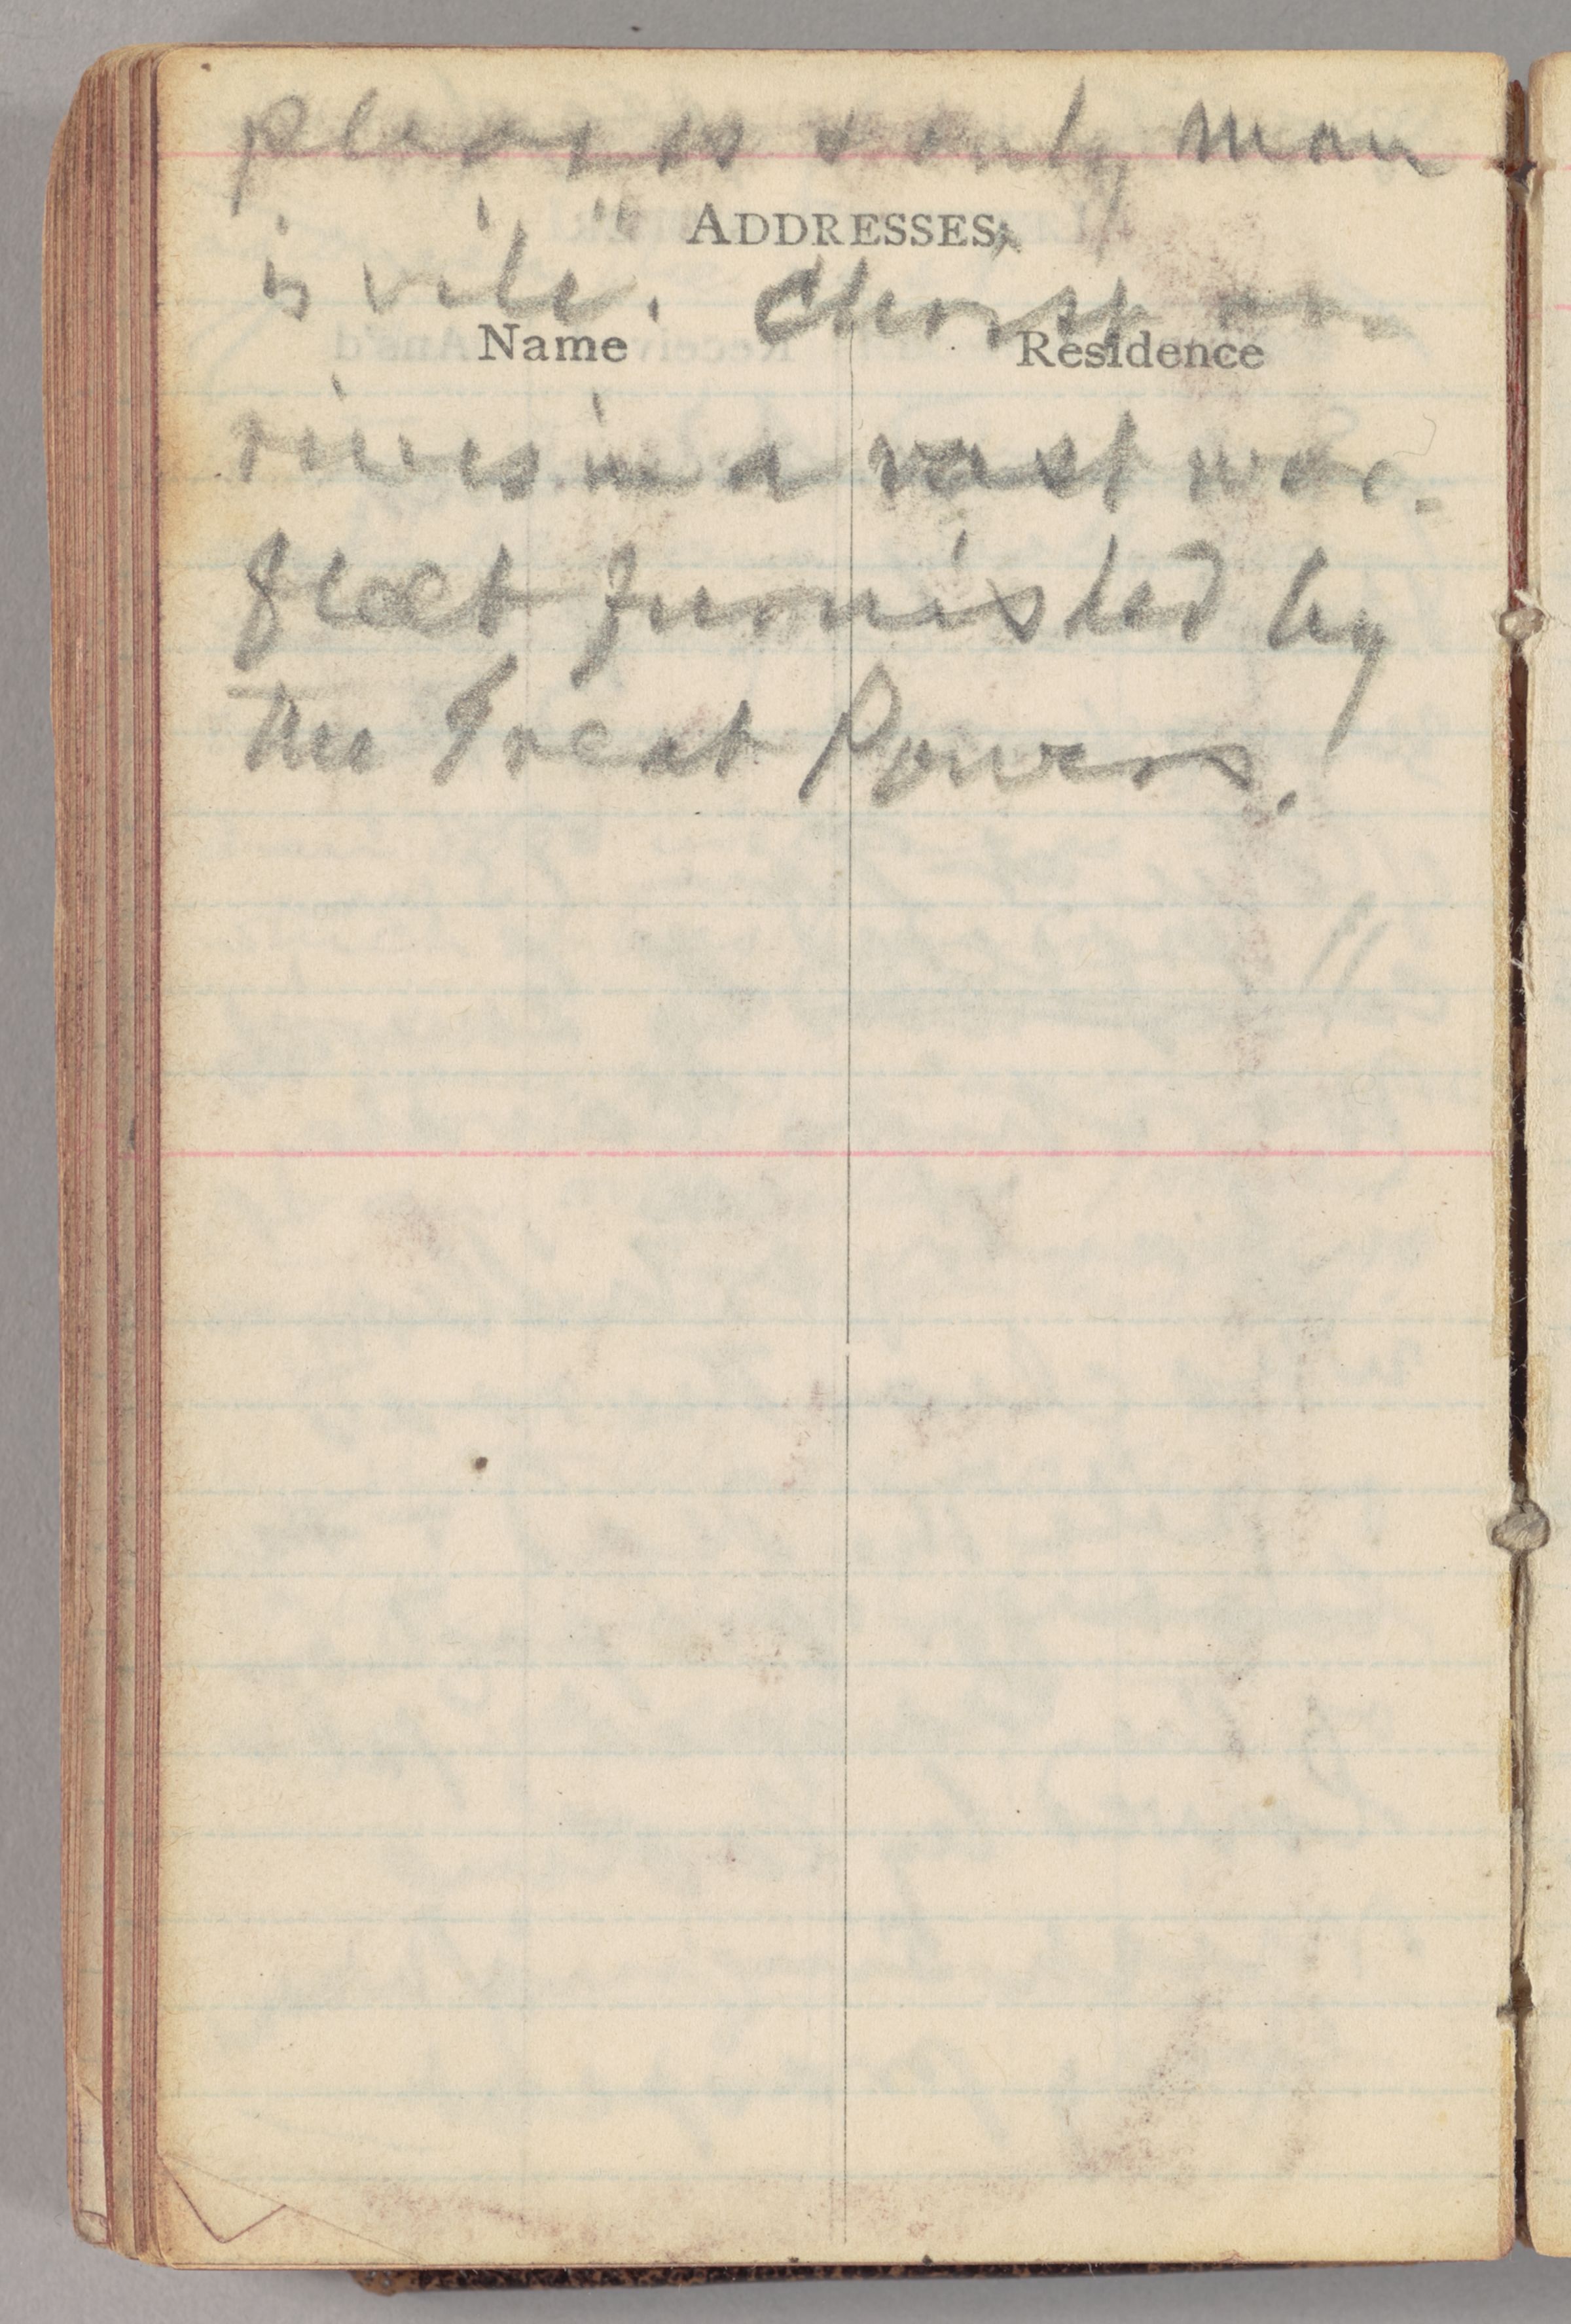 pleases & only man
ADDRESSES
is vile". Christ ar-
Name Residence
rives in a vast war-
fleet furnished by
the Great Powers.